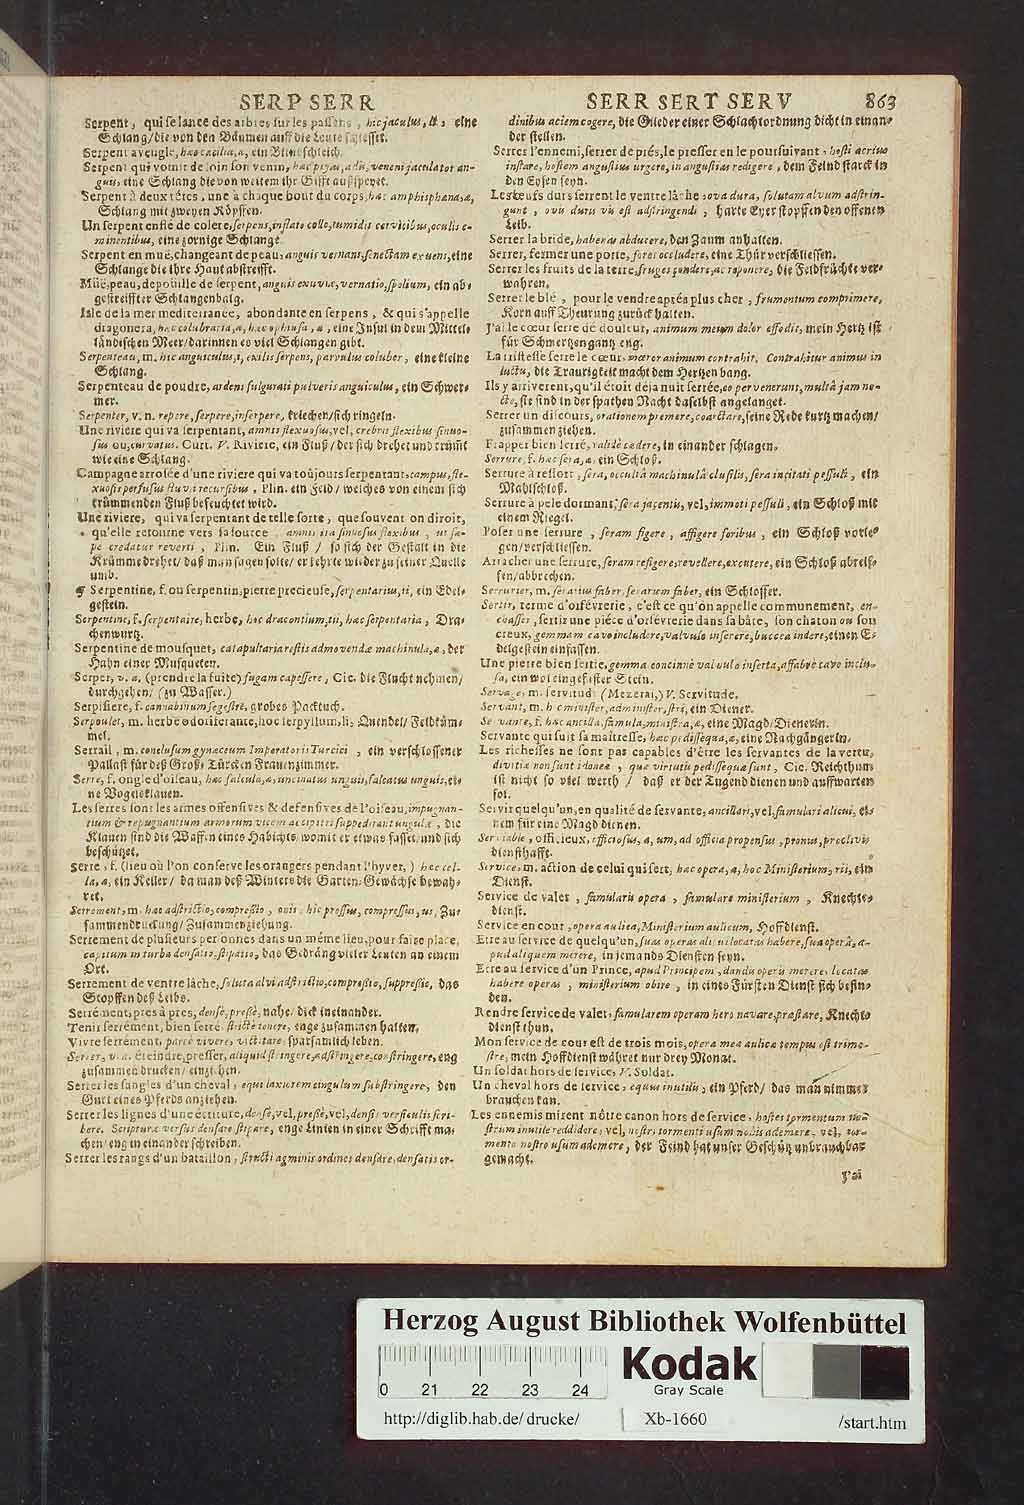 SERP SERR
Serpent, qui se lance des arbres sur les passens, hic jaculus, li, eine
Schlang/die von den Bäumen auff die Leute schiesset.
Serpent aveugle, hæc cæcilia, æ, ein Blindschleich.
Serpent qui vomit de loin son venin, veneni jaculator an-
guis, eine Schlang die von weitem ihr Gifft außspeyet.
Serpent à deux têtes, une à chaque bout du corps, hæc amphisbæna, æ,
Schlang mit zweyen Köpffen.
Un serpent enflé de colere, serpens, inflato collo, tumidis cervicibus, oculis e-
minentibus, eine zornige Schlange.
Serpent en muë, changeant de peau, anguis vernans, senectam exuens, eine
Schlange die ihre Haut abstreifft.
Müe, peau, depoüille de serpent, anguis exuviæ, vernatio, spolium, ein ab-
gestreiffter Schlangenbalg.
Isle de la mer mediterranée, abondante en serpens, & qui s'appelle
dragonera, hæc colubraria, æ, hæc ophiusa, æ, eine Insul in dem Mittel-
ländischen Meer/darinnen es viel Schlangen gibt.
Serpenteau, m. hic anguiculus, i, exilis serpens, parvulus coluber, eine kleine
Schlang.
Serpenteau de poudre, ardens fulgurati pulveris anguiculus, ein Schwer-
mer.
Serpenter, v. n. repere, serpere, inserpere, kriechen/sich ringeln.
Une riviere qui va serpentant, amnis flexuosus, vel, crebris flexibus sinuo-
sus ou, curvatus. Curt. V. Riviere, ein Fluß/der sich drehet und krümt
wie eine Schlang.
Campagne arrosée d'une riviere qui va toûjours serpentant, campus, fle-
xuosis perfusus fluvii recursibus, Plin. ein Feld/welches von einem sich
krümmenden Fluß befeuchtet wird.
Une riviere, qui va serpentant de telle sorte, que souvent on diroit,
qu'elle retourne vers sa source, amnis ita sinuosus flexibus, ut sæ-
pe credatur reverti, Plin. Ein Fluß/so sich der Gestalt in die
Krümme drehet/daß man sagen solte/er kehrte wieder zu seiner Quelle
umb.
¶ Serpentine, f. ou serpentin, pierre precieuse, serpentarius, ii, ein Edel-
gestein.
Serpentine, f. serpentaire, herbe, hoc dracontium, tii, hæc serpentaria, Dra-
chenwurtz.
Serpentine de mousquet, catapultaria restis admovendæ machinula, æ, der
Hahn einer Musqueten.
Serper, v. a. (prendre la fuite) fugam capessere, Cic. die Flucht nehmen/
durchgehen/(zu Wasser.)
Serpiliere, f. cannabinum segestre, grobes Packtuch.
Serpoulet, m. herbe odoriferante, hoc serpyllum, li, Quendel/Feldküm-
mel.
Serrail, m. conclusum gynæceum Imperatoris Turcici, ein verschlossener
Pallast für deß Groß-Türcken Frauenzimmer.
Serre, f. ongle d'oiseau, hæc falcula, æ, uncinatus unguis, falcatus unguis, ei-
ne Vogelsklauen.
Les serres sont les armes offensives & defensives de l'oiseau, impugnan-
tium & repugnantium armorum vicem accipitri suppeditant ungulæ, die
Klauen sind die Waffen eines Habichts womit er etwas fasset und sich
beschützet.
Serre, f. (lieu où l'on conserve les orangers pendant l'hyver,) hæc cel-
la, æ, ein Keller/da man deß Winters die Garten-Gewächse bewah-
ret.
Serrement, m. hæc adstrictio, compressio, onis, hic pressus, compressus, us, Zu-
sammendruckung/Zusammenziehung.
Serrement de plusieurs personnes dans un même lieu, pour faire place,
capitum in turba densatio, stipatio, das Gedräng vieler Leuten an einem
Ort.
Serrement de ventre lâche, soluta alvi adstrictio, compressio, suppressio, das
Stopffen deß Leibs.
Serrément, pres à pres, densè, pressè, nahe/dick ineinander.
Tenir serrément, bien serré, strictè tenere, enge zusammen halten.
Vivre serrément, parcè vivere, victitare, sparsamlich leben.
Serrer, v. a. étreindre, presser, aliquid stringere, adstringere, constringere, eng
zusammen drucken/einziehen.
Serrer les sangles d'un cheval, equi laxiorem cingulum substringere, den
Gurt eines Pferds anziehen.
Serrer les lignes d'une écriture, densè, vel, pressè, vel, densis versiculis scri-
bere. Scripturæ versus densare stipare, enge Linien in einer Schrifft ma-
chen/eng in einander schreiben.
Serrer les rangs d'un bataillon, stricti agminis ordines densare, densatis or-
SERR SERT SERV 863
dinibus aciem cogere, die Glieder einer Schlachtordnung dicht in einan-
der stellen.
Serrer l'ennemi, serrer de prés, le presser en le poursuivant, hosti acrius
instare, hostem angustius urgere, in angustias redigere, dem Feind starck in
den Eysen seyn.
Les œufs durs serrent le ventre lâche, ova dura, solutam alvum adstrin-
gunt, ovis duris vis est adstringendi, harte Eyer stopffen den offenen
Leib.
Serrer la bride, habenas abducere, den Zaum anhalten.
Serrer, fermer une porte, fores occludere, eine Thür verschliessen.
Serrer les fruits de la terre, fruges condere, ac reponere, die Feldfrüchte ver-
wahren.
Serrer le blé, pour le vendre aprés plus cher, frumentum comprimere,
Korn auff Theurung zurück halten.
J'ai le cœur serré de douleur, animum meum dolor effodit, mein Hertz ist
für Schmertzen gantz eng.
La tristesse serre le cœur, mœror animum contrahit. Contrahitur animus in
luctu, die Traurigkeit macht dem Hertzen bang.
Ils y arriverent, qu'il étoit déja nuit serrée, eo pervenerunt, multâ jam no-
cte, sie sind in der spathen Nacht daselbst angelanget.
Serrer un discours, orationem premere, coarctare, seine Rede kurtz machen/
zusammen ziehen.
Frapper bien serré, validè cædere, in einander schlagen.
Serrure, f. hæc sera, æ, ein Schloß.
Serrure à ressort, sera, occultâ machinulâ clusilis, sera incitati pessuli, ein
Mahlschloß.
Serrure à pele dormant, sera jacentis, vel, immoti pessuli, ein Schloß mit
einem Riegel.
Poser une serrure, seram figere, affigere foribus, ein Schloß vorle-
gen/verschliessen.
Arracher une serrure, seram refigere, revellere, excutere, ein Schloß abreis-
sen/abbrechen.
Serrurier, m. serarius faber, serariem faber, ein Schlosser.
Sertir, terme d'orfévrerie, c'est ce qu'on appelle communement, en-
chasser, sertir une piéce d'orfévrerie dans sa bâte, son chaton ou son
creux, gemmam cavo includere, valvulo inserere, bucceæ indere, einen E-
delgestein einfassen.
Une pierre bien sertie, gemma concinnè valvulo inserta, affabrè cavo inclu-
sa, ein wol eingefaster Stein.
Servage, m. servitude (Mezerai,) V. Servitude.
Servant, m. hic minister, administer, stri, ein Diener.
Servante, f. hæc ancilla, famula, ministra, æ, eine Magd/Dienerin.
Servante qui suit sa maîtresse, hæc pedissequa, æ, eine Nachgängerin.
Les richesses ne sont pas capables d'être les servantes de la vertu,
divitiæ non sunt idoneæ, quæ virtutis pedissequæ sunt, Cic. Reichthum
ist nicht so viel werth/daß er der Tugend dienen und auffwarten
sol.
Servir quelqu'un, en qualité de servante, ancillari, vel, famulari alicui, ei-
nem für eine Magd dienen.
Serviable, officieux, officiosus, a, um, ad officia propensus, pronus, proclivis
diensthafft.
Service, m. action de celui qui sert, hæc opera, æ, hoc Ministerium, rii, ein
Dienst.
Service de valet, famularis opera, famulare ministerium, Knechts-
dienst.
Service en cour, opera aulica, Ministerium aulicum, Hoffdienst.
Etre au service de quelqu'un, suas operas alicui locatas habere, sua operâ, a-
pud aliquem merere, in jemands Diensten seyn.
Etre au service d'un Prince, apud Principem, dandis operis merere, locatas
habere operas, ministerium obire, in eines Fürsten Dienst sich befin-
den.
Rendre service de valet, famularem operam hero navare, præstare, Knechts-
dienst thun.
Mon service de cour est de trois mois, opera meæ aulicæ tempus est trime-
stre, mein Hoffdienst währet nur drey Monat.
Un soldat hors de service, V. Soldat.
Un cheval hors de service, equus inutilis, ein Pferd/das man nimmer
brauchen kan.
Les ennemis mirent nôtre canon hors de service, hostes tormentum no-
strum inutile reddidere, vel, nostri tormenti usum nobis ademere, vel, tor-
mento nostro usum ademere, der Feind hat unser Geschütz unbrauchbar
gemacht.
Herzog August Bibliothek Wolfenbüttel
Kodak
Gray Scale
0 21 22 23 24
http://diglib.hab.de/drucke/ Xb-1660 /start.htm